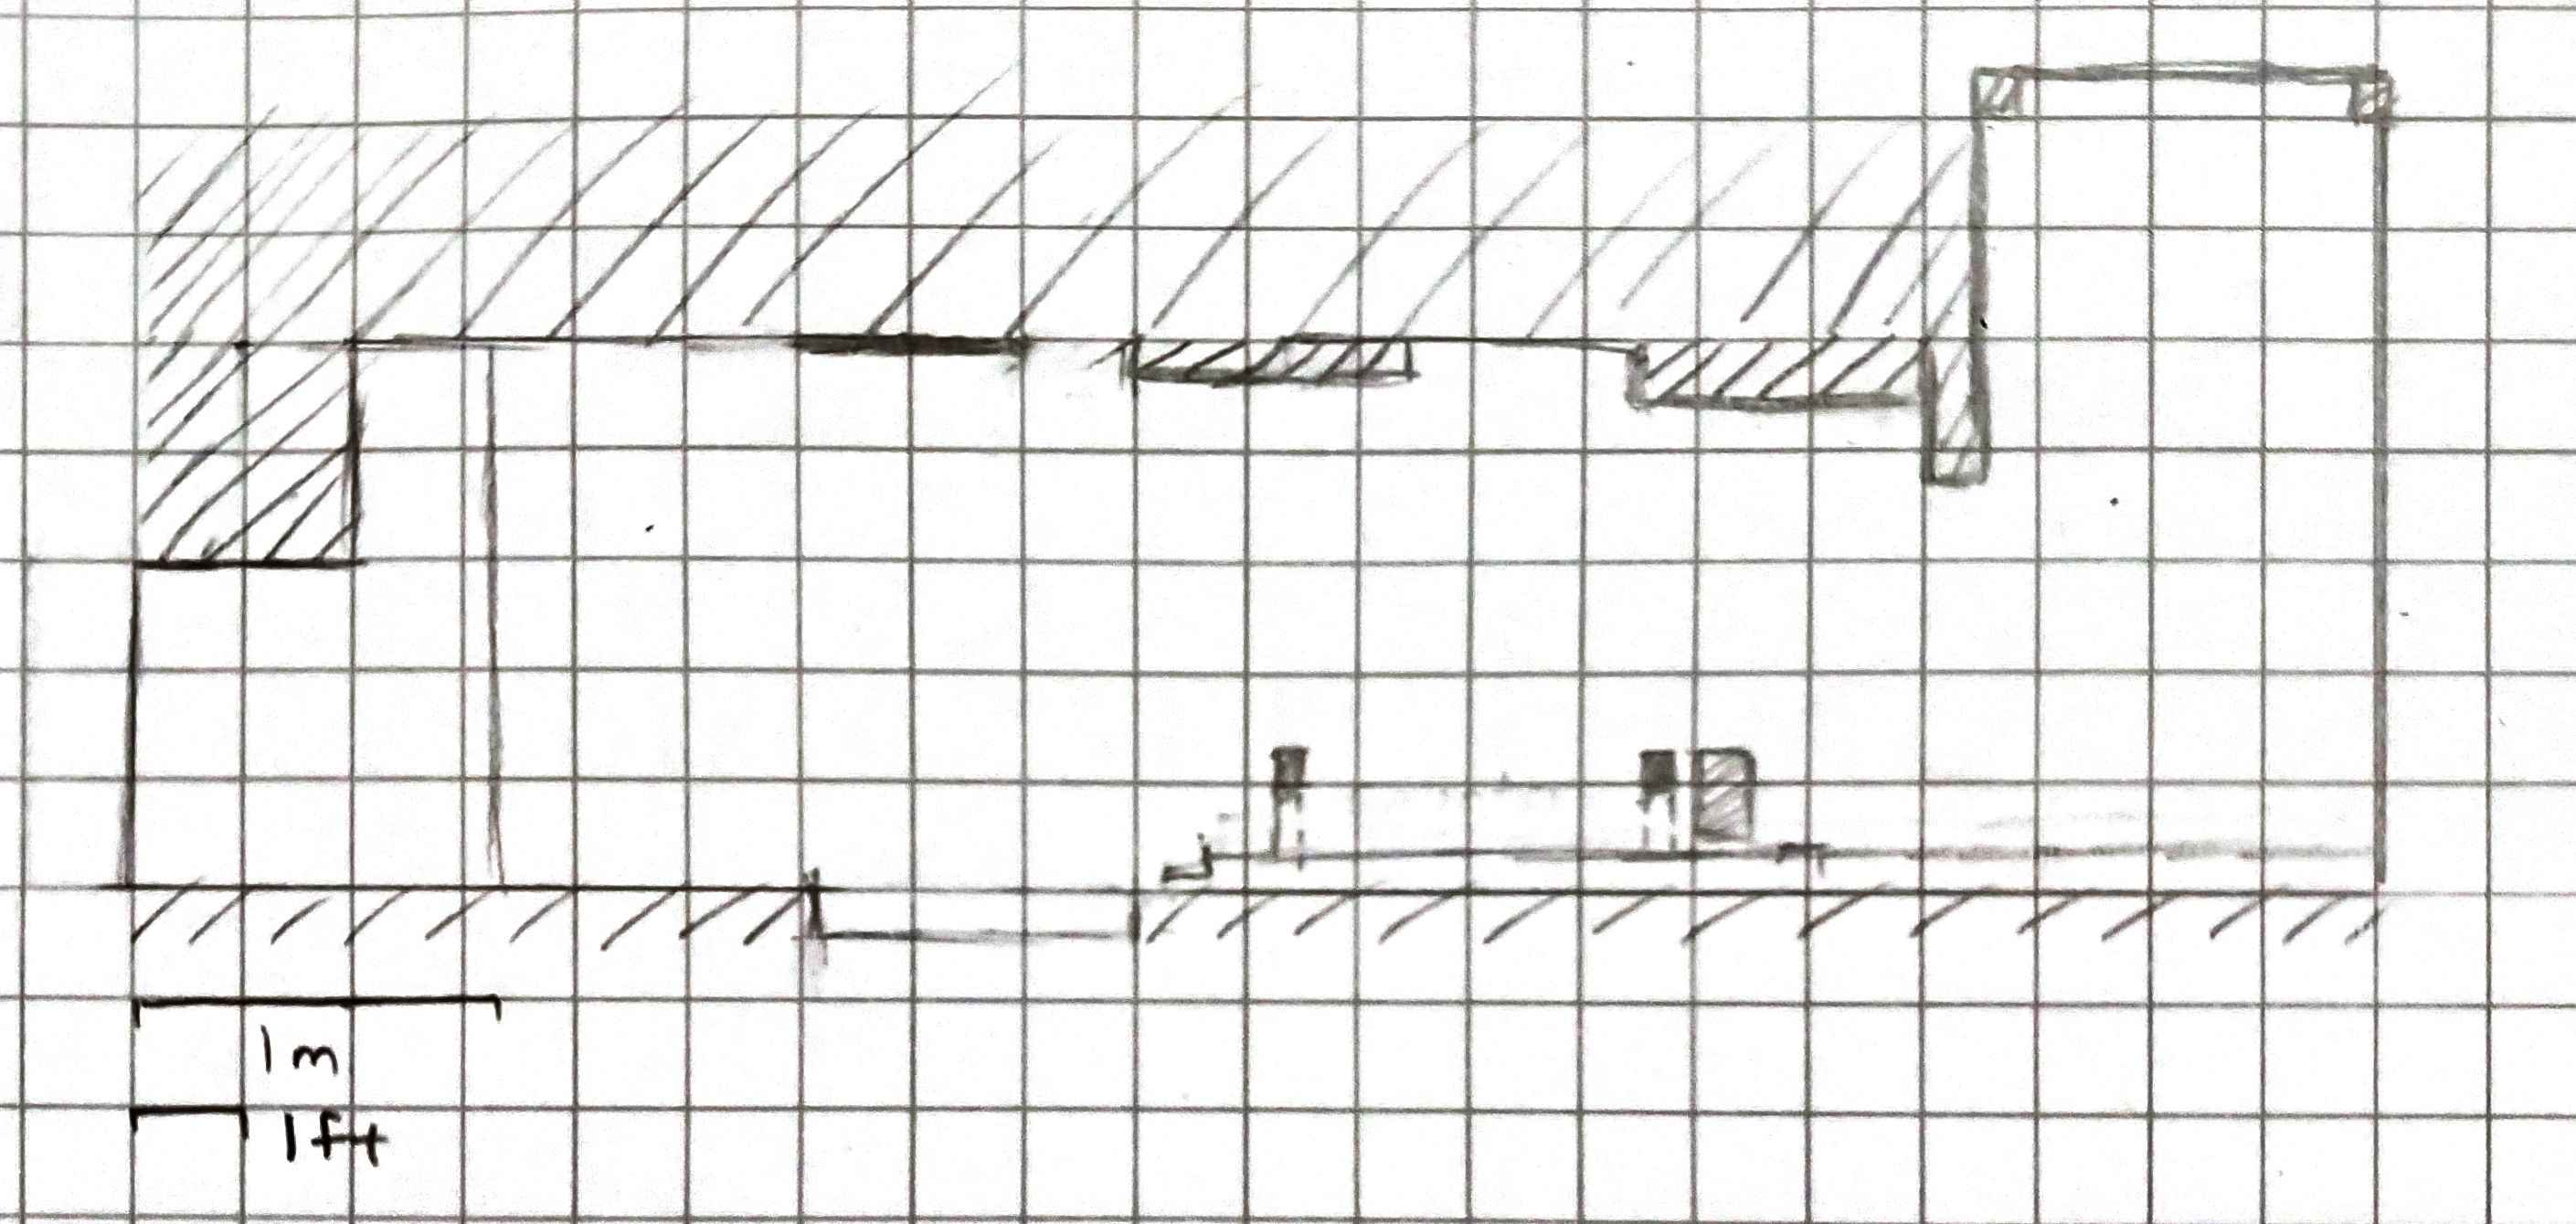 1 m
1 ft